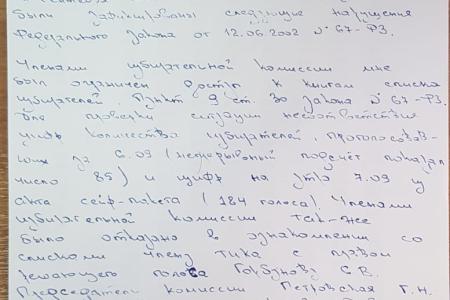 были зафиксированы следующие нарушения
Федерального Закона от 12.06.2002 № 67-ФЗ.
Членами избирательной комиссии мне
был ограничен доступ к книгам списка
избирателей. Пункт 9 ст. 30 Закона № 67-ФЗ.
Для проверки ситуации несоответствия
цифр количества избирателей, проголосовав-
ших за 6.09 (непрерывный подсчёт показал
число 85) и цифр на утро 7.09 из
акта сейф-пакета (184 голоса). Членами
избирательной комиссии так-же
было отказано в ознакомлении со
списками члену тика с правом
решающего голоса Горбунову С.В.
Председатель комиссии Петровская Г.Н.